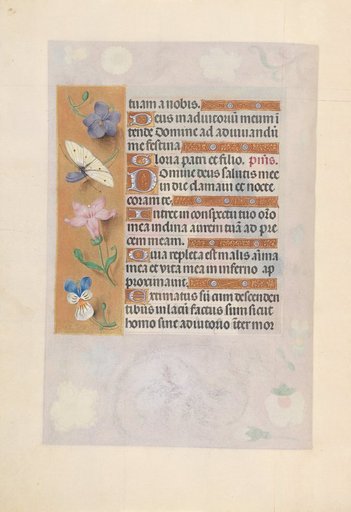 tuam a nobis.
Deus in adiutoriū meum ī
tende Domine ad adiuuandū
me festina.
Gloria patri et filio. pius.
Domine deus salutis mee
in die clamaui et nocte
coram te.
Intret in conspectu tuo oro
mea inclina aurem tuā ad pre
cem meam.
Quia repleta est malis aīma
mea et vita mea in inferno ap
propinauit.
Estimatus sū cum descenden
tibus in lacū factus sum sicut
homo sine adiutorio īter mor